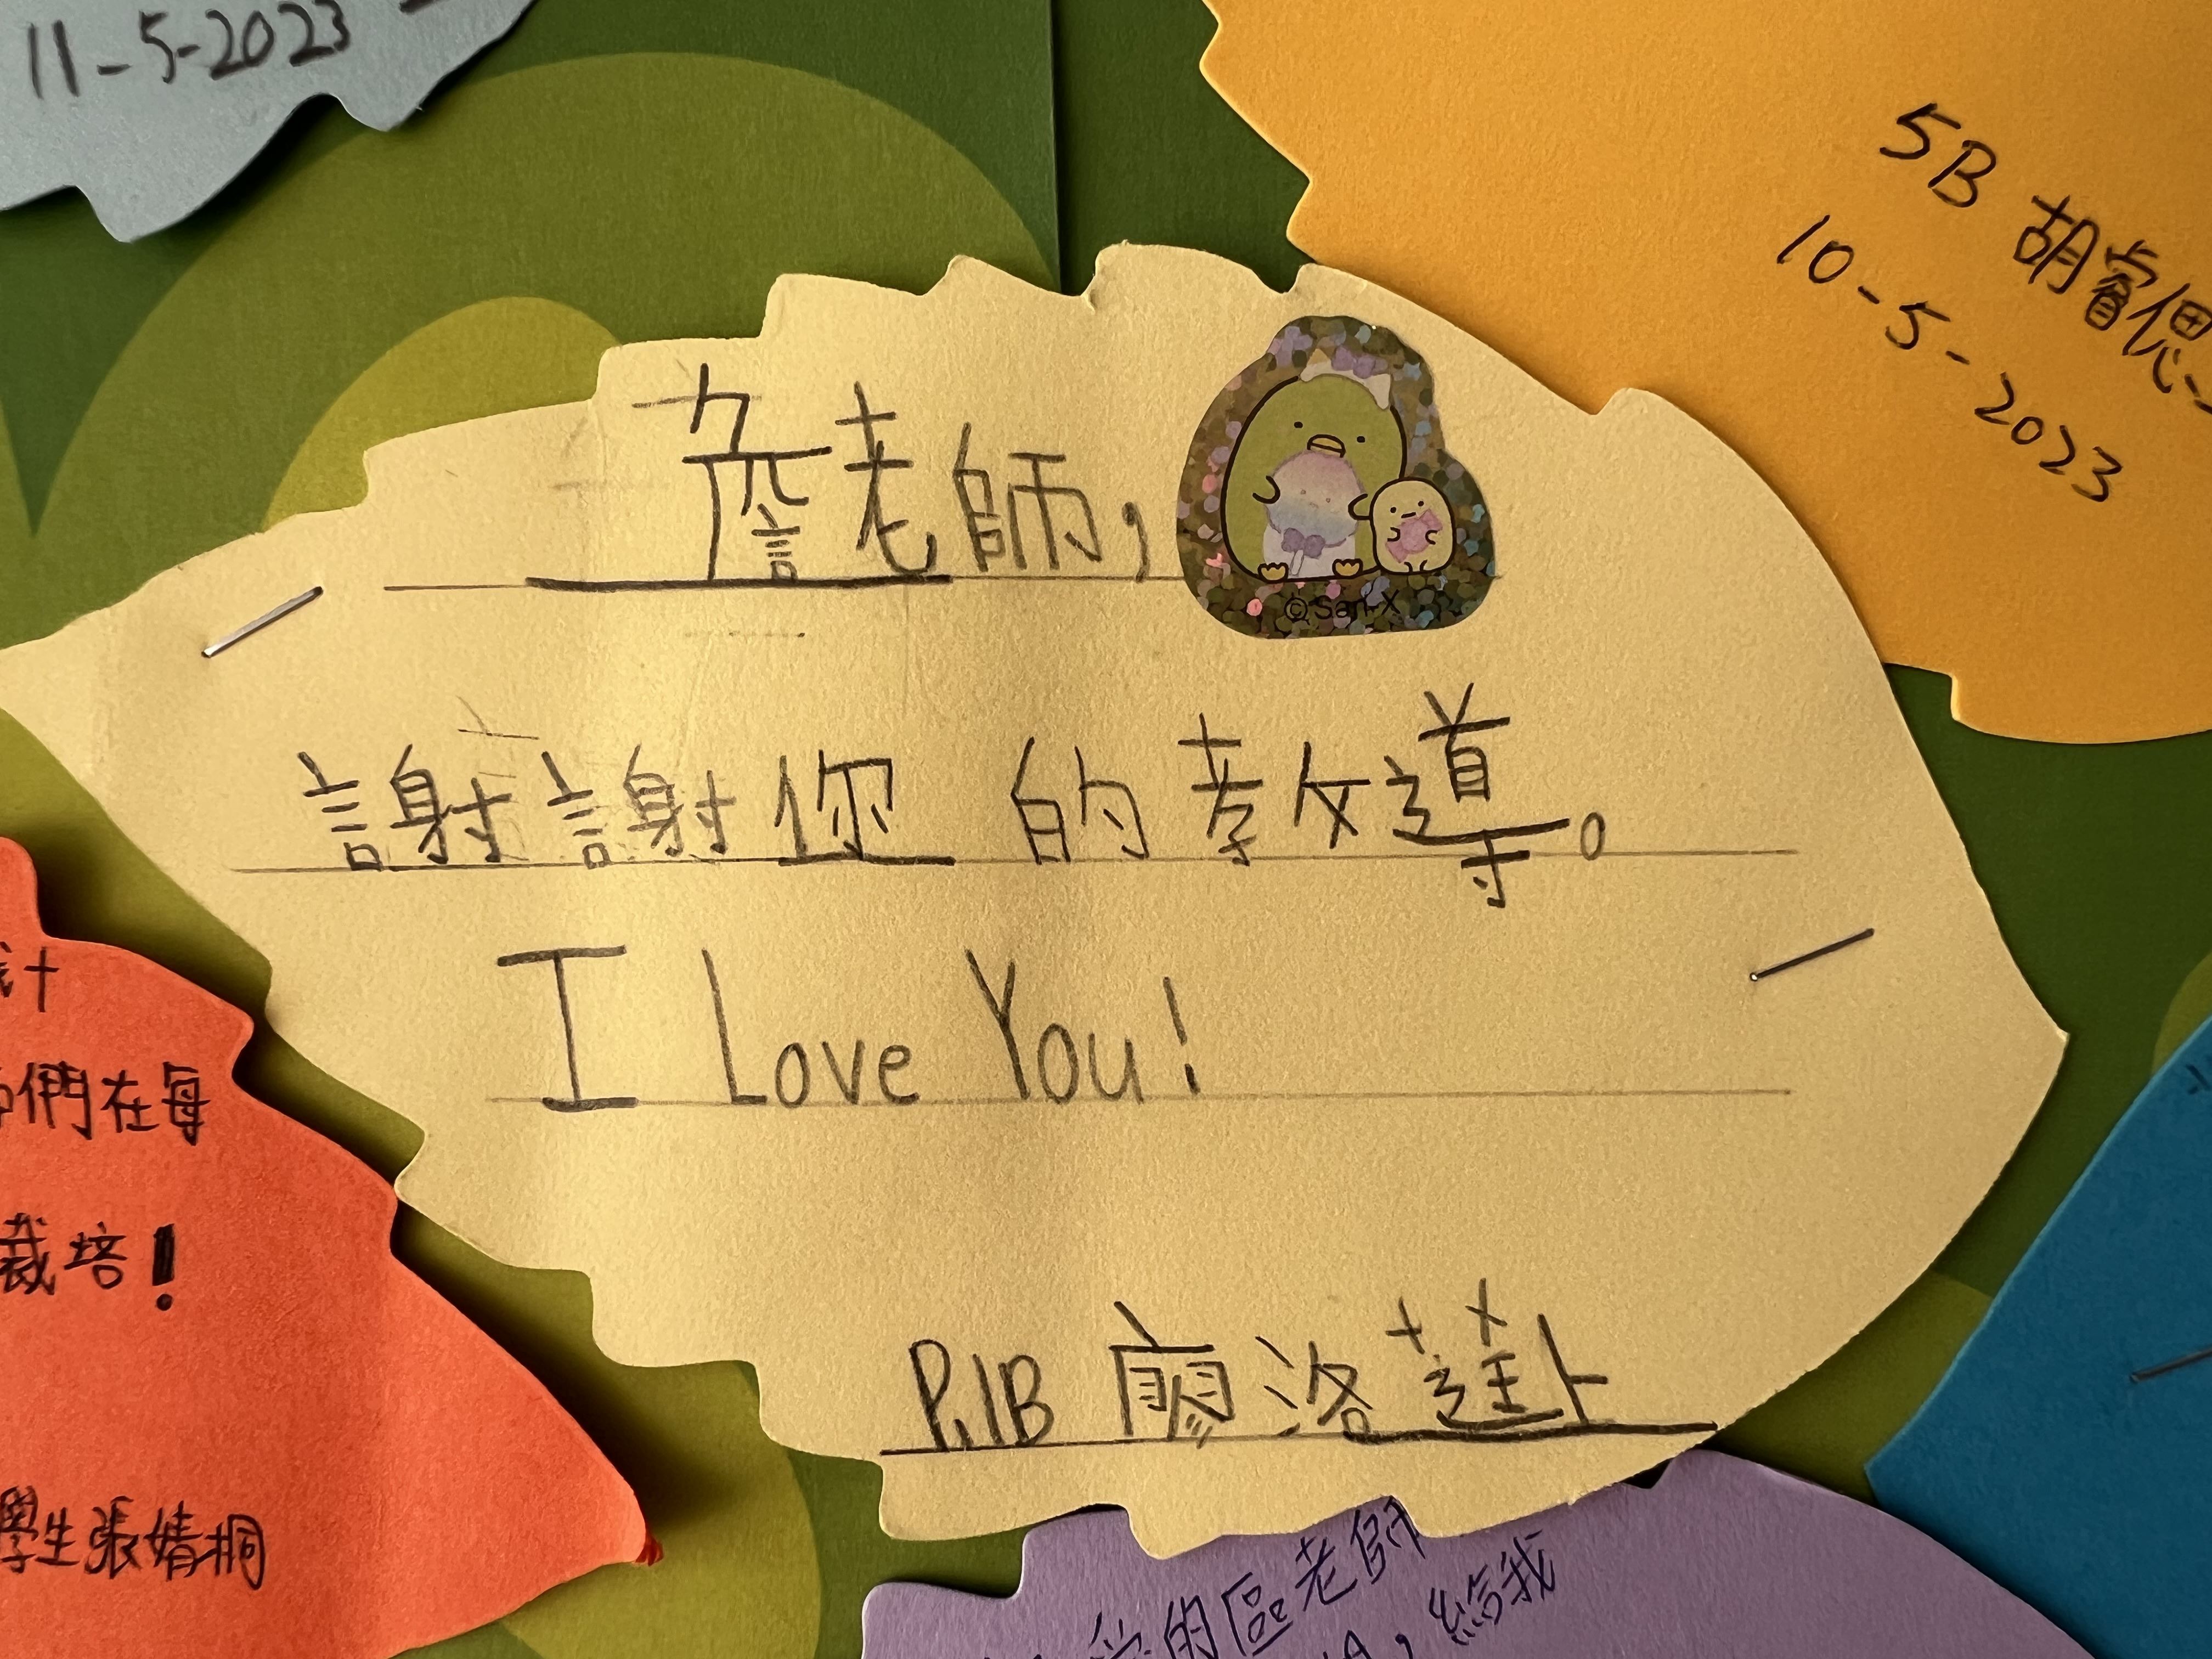 11-5-2023
5B 胡睿偲
10-5-2023
詹老師,
© San-X
謝謝你 的教導。
I Love You!
P.1B 廖洛蓮上
們在每
栽培!
學生張婧桐
的區老師
,給我